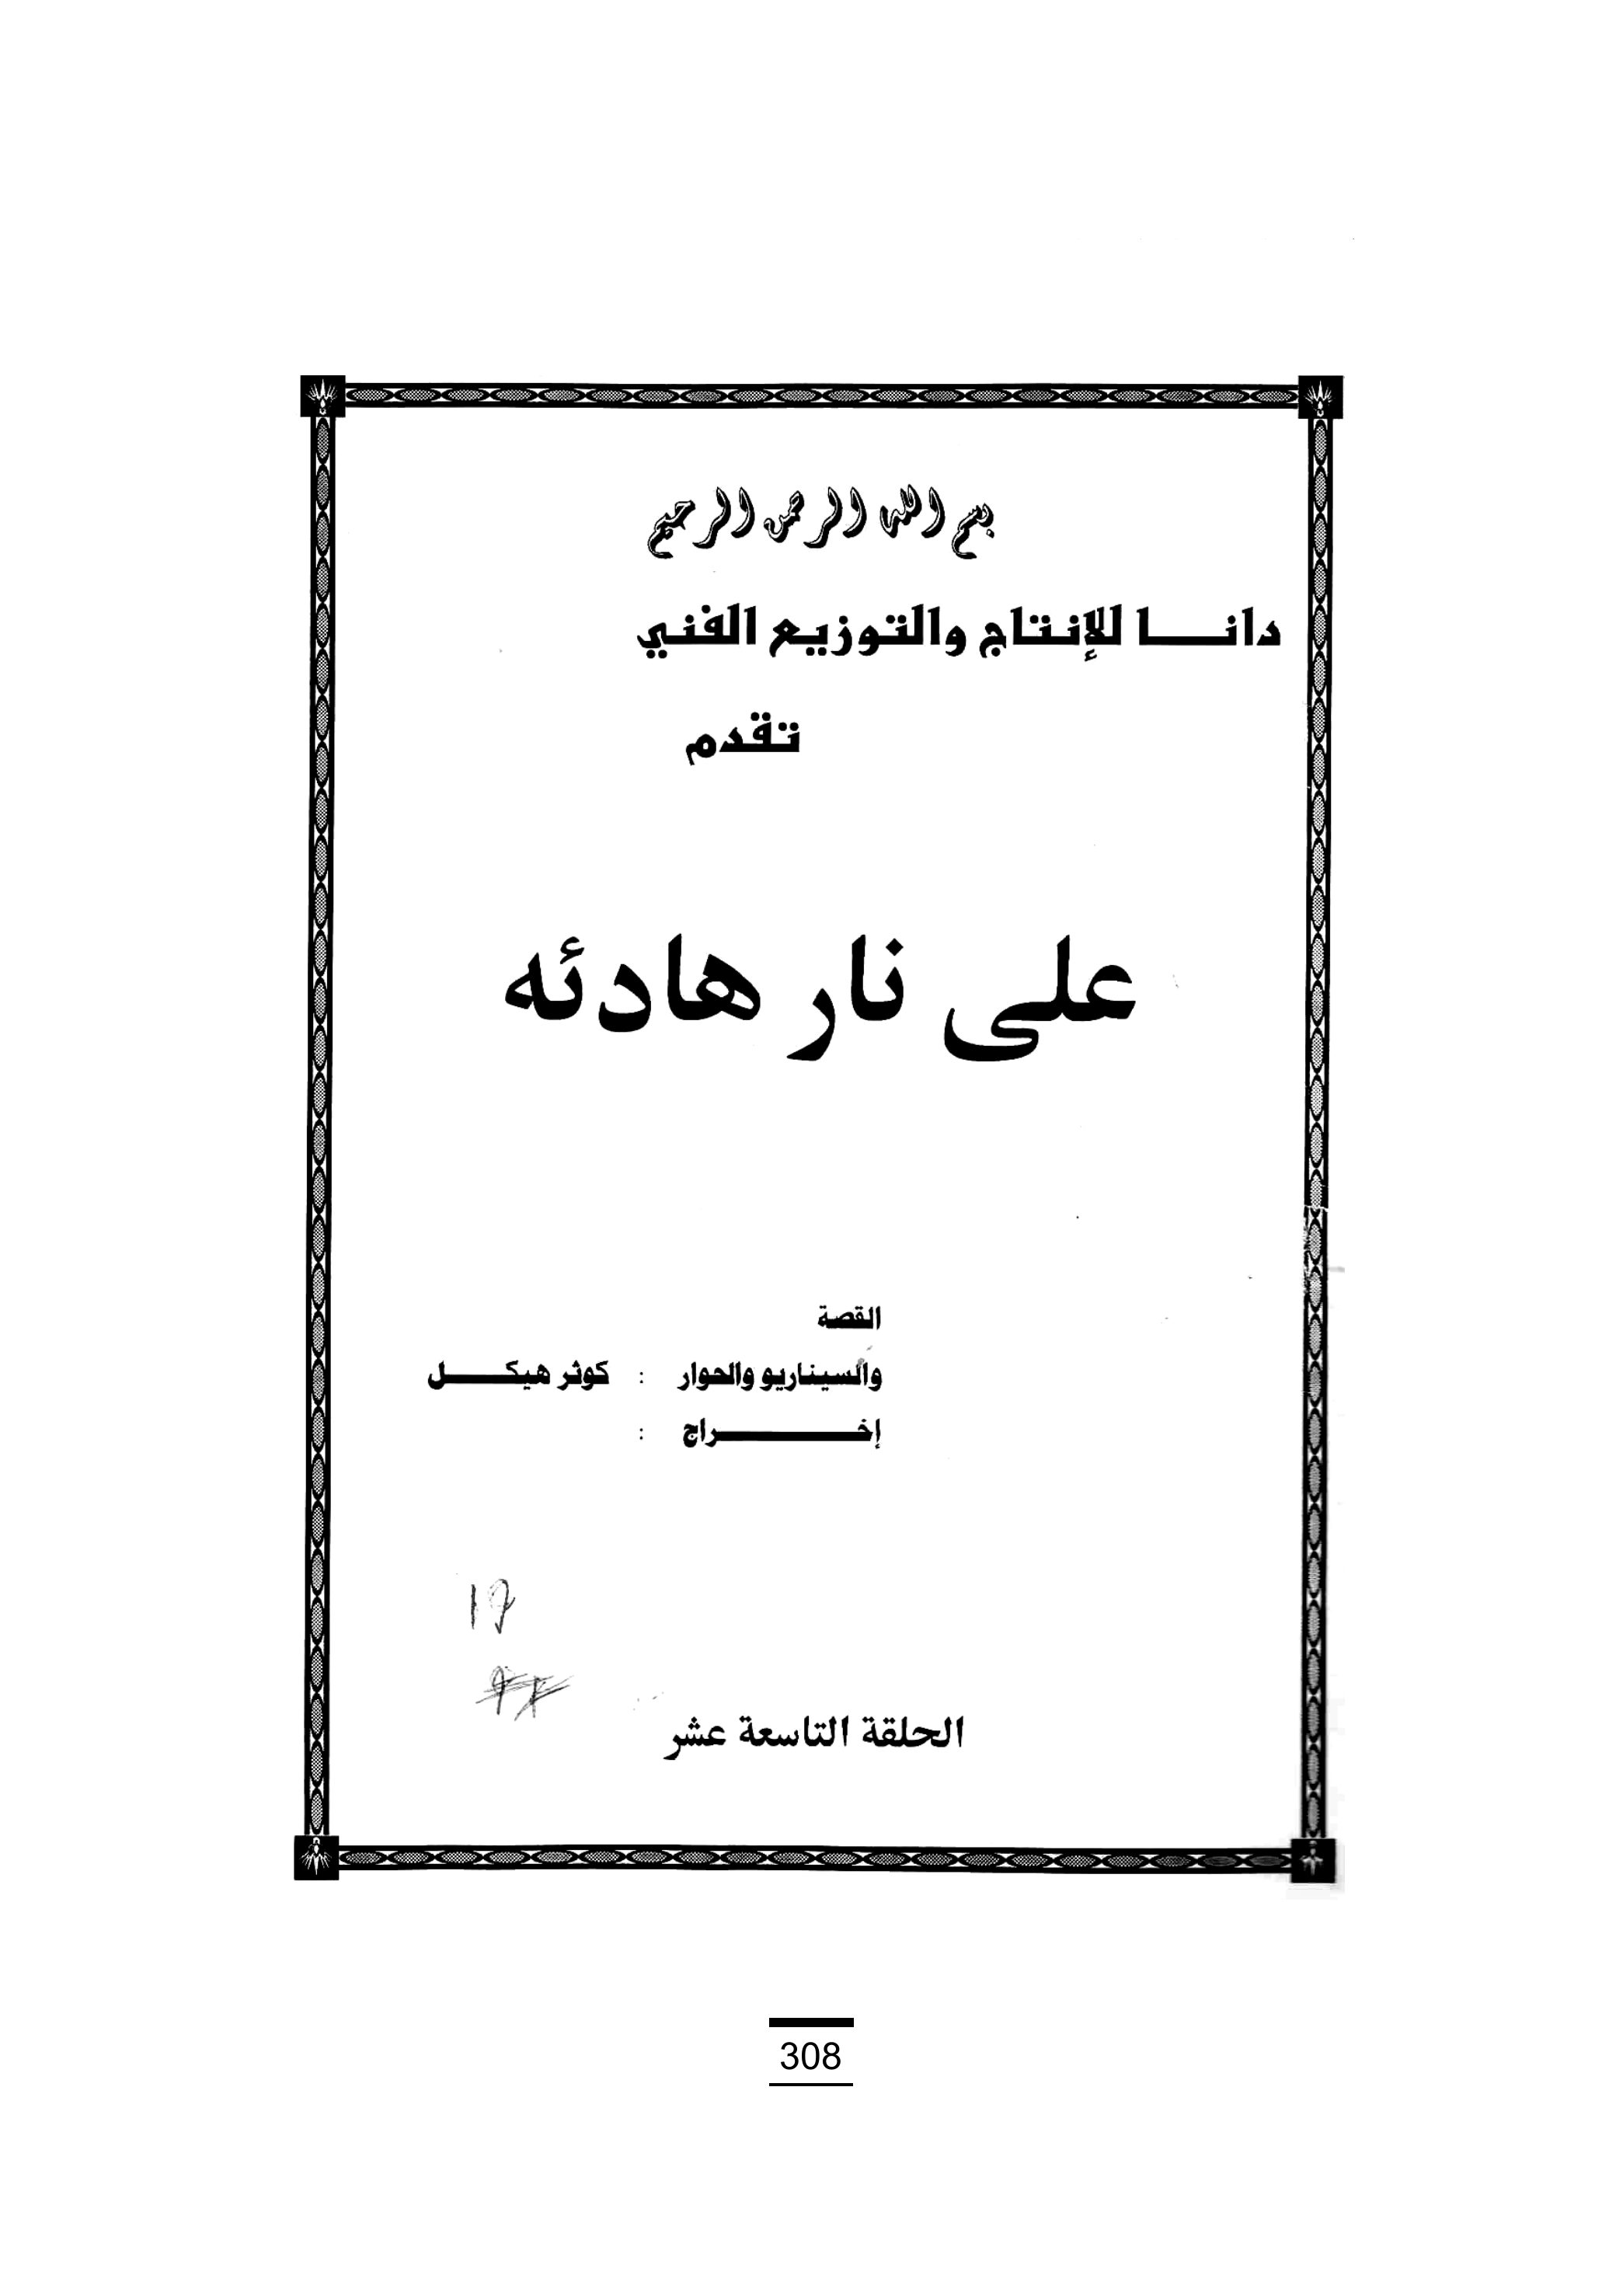 بسم الله الرحمن الرحيم
دانا للإنتاج والتوزيع الفني
تقدم
على نار هادئه
القصة
والسيناريو والحوار : كوثر هيكل
إخراج :
19
الحلقة التاسعة عشر
308